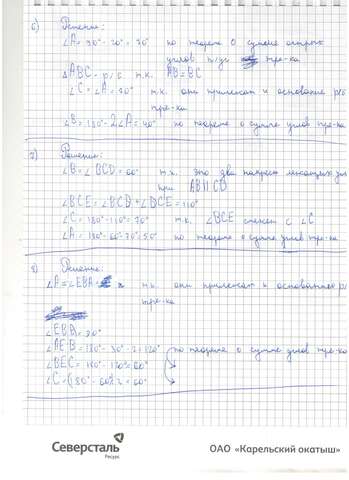 6) Решение:
∠A = 90° - 20° = 70° по теореме о сумме острых
углов п/у тре-ка
△ABC - р/б т.к. AB = BC
∠C = ∠A = 70° т.к. они прилежат к основанию р/б
тре-ка
∠B = 180° - 2∠A = 40° по теореме о сумме углов тре-ка
7) Решение:
∠B = ∠BCD = 60° т.к. это два накрест лежащих
при AB II CD
∠BCE = ∠BCD + ∠DCE = 110°
∠C = 180° - 110° = 70° т.к. ∠BCE смежен с ∠C
∠A = 180° - 60° - 70° = 50° по теореме о сумме углов тре-ка
8) Решение:
∠A = ∠EBA т.к. они прилежат к основанию р/
тре-ка
∠EBA = 30°
∠AEB = 180° - 30° · 2 = 120° по теореме о сумме углов тре-ка
∠BEC = 180° - 120° = 60°
∠C = (180° - 60°) : 2 = 60°
Северсталь
Ресурс
ОАО «Карельский окатыш»